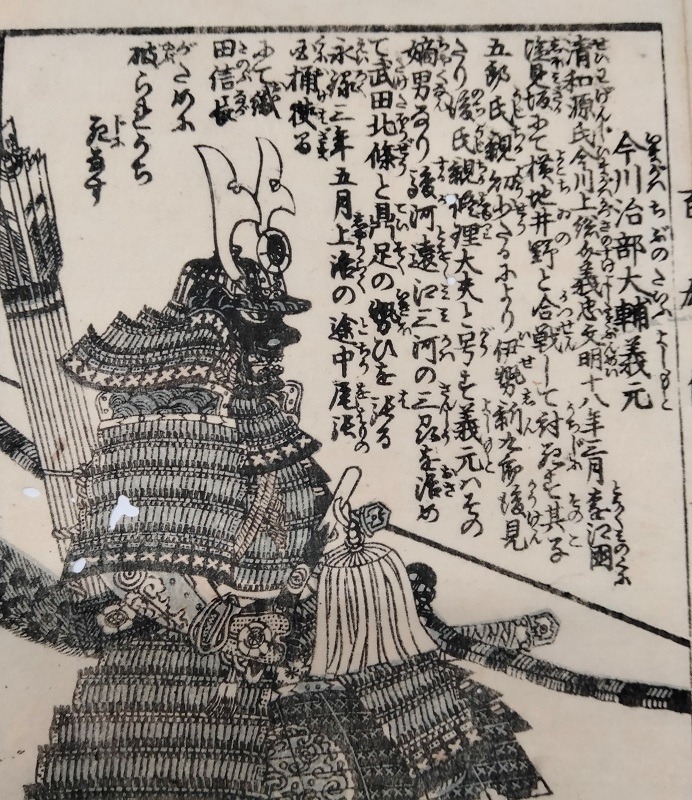 今川治部大輔義元
清和源氏今川上総介義忠文明十八年三月遠江国
塩見坂にて横地井野と合戦して討死す其子
五郎氏親幼少たるにより伊勢新九郎後見
たり後氏親修理大夫と号す義元ハその
嫡男なり駿河遠江三河の三国を治め
て武田北條と鼎足の勢ひを張る
永禄三年五月上洛の途中尾張
国桶狭間
にて織
田信長
がために
破られうち
死す